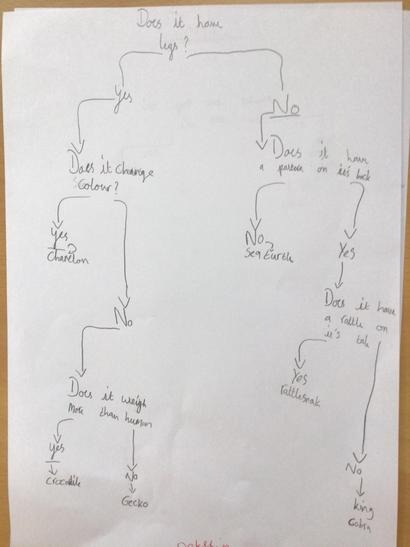 Does it have
legs?
Yes
No
Does it change
colour?
Does it have
a pattern on it's back
Yes
No
Sea turtle
Yes
No
Does it have
a rattle on
it's
Yes
rattlesnak
Does it weigh
more than human
Yes
No
Crocodile
Gecko
No
king
Cobra